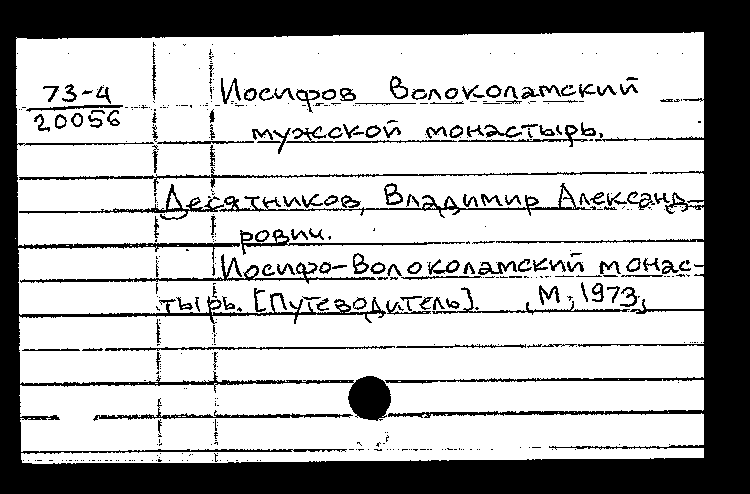 73-4
20056
Иосифов Волоколамский
мужской монастырь.
Десятников, Владимир Александ-
рович.
Иосифо-Волоколамский монас-
тырь. [Путеводитель]. М., 1973,